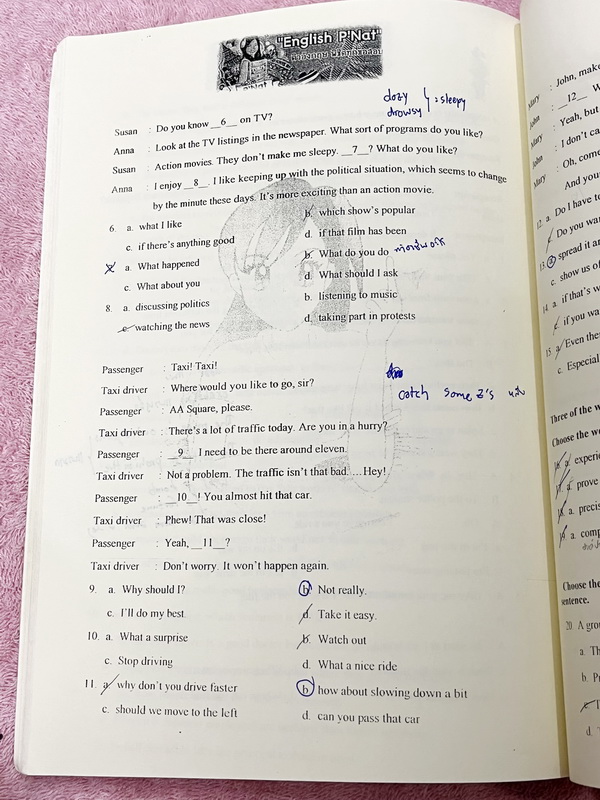 "English P'Nat"
dozy
drowsy
: sleepy
Susan : Do you know __6__ on TV?
Anna : Look at the TV listings in the newspaper. What sort of programs do you like?
Susan : Action movies. They don't make me sleepy. __7__? What do you like?
Anna : I enjoy __8__. I like keeping up with the political situation, which seems to change
by the minute these days. It's more exciting than an action movie.
6. a. what I like b. which show's popular
c. if there's anything good d. if that film has been
a. What happened b. What do you do
c. What about you d. What should I ask
8. a. discussing politics b. listening to music
c. watching the news d. taking part in protests
Passenger : Taxi! Taxi!
Taxi driver : Where would you like to go, sir?
catch some z's
Passenger : AA Square, please.
Taxi driver : There's a lot of traffic today. Are you in a hurry?
Passenger : __9__ I need to be there around eleven.
Taxi driver : Not a problem. The traffic isn't that bad. ...Hey!
Passenger : __10__! You almost hit that car.
Taxi driver : Phew! That was close!
Passenger : Yeah, __11__?
Taxi driver : Don't worry. It won't happen again.
9. a. Why should I? b. Not really.
c. I'll do my best. d. Take it easy.
10. a. What a surprise b. Watch out
c. Stop driving d. What a nice ride
11. a. why don't you drive faster b. how about slowing down a bit
c. should we move to the left d. can you pass that car
Mary : John, make
John : __12__ W
Mary : Yeah, but
John : I don't ca
Mary : Oh, come
And you
12. a. Do I have to
c. Do you wa
13. a. spread it ar
c. show us o
14. a. if that's w
c. if you wa
15. a. Even the
c. Especial
Three of the w
Choose the wo
16. a. experie
17. a. prove
18. a. precis
19. a. comp
Choose the
sentence.
20. A grou
a. Th
b. Pr
c. T
d.